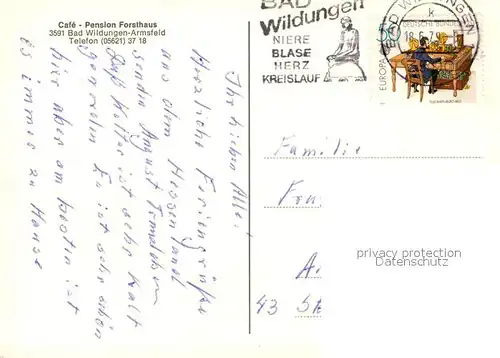 Café - Pension Forsthaus
3591 Bad Wildungen-Armsfeld
Telefon (05621) 37 18
Ihr Lieben Alle!
Herzliche Feriengrüße
aus dem Hessenland
senden August
Kalt ist sehr kalt
geworden Es ist sehr schön
hier aber am besten ist
es immer zu Hause
BAD
Wildungen
NIERE
BLASE
HERZ
KREISLAUF
BAD WILDUNGEN
k
EUROPA
DEUTSCHE BUNDESPOST
Familie
privacy protection
Datenschutz
43